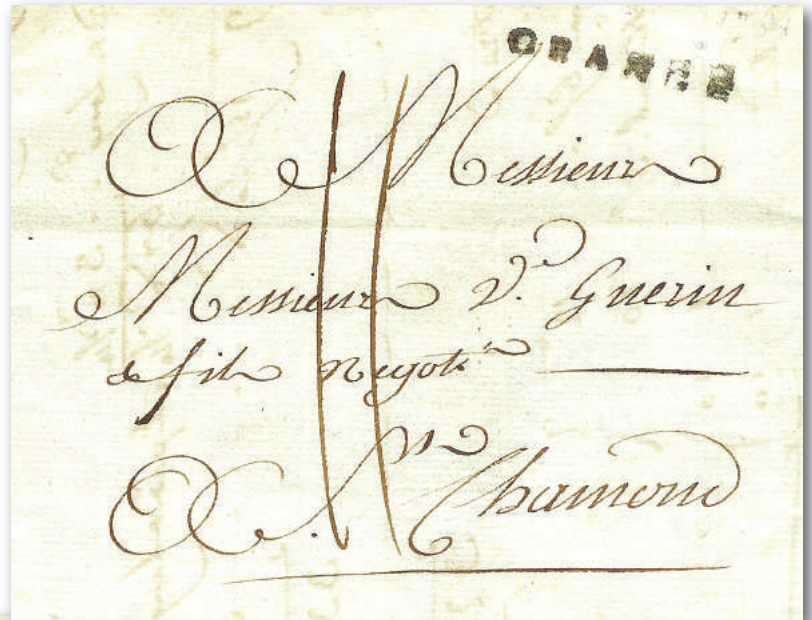 ORANGE
A Messieurs
Messieurs V.e Guerin
& fils Negots
A St Chamond